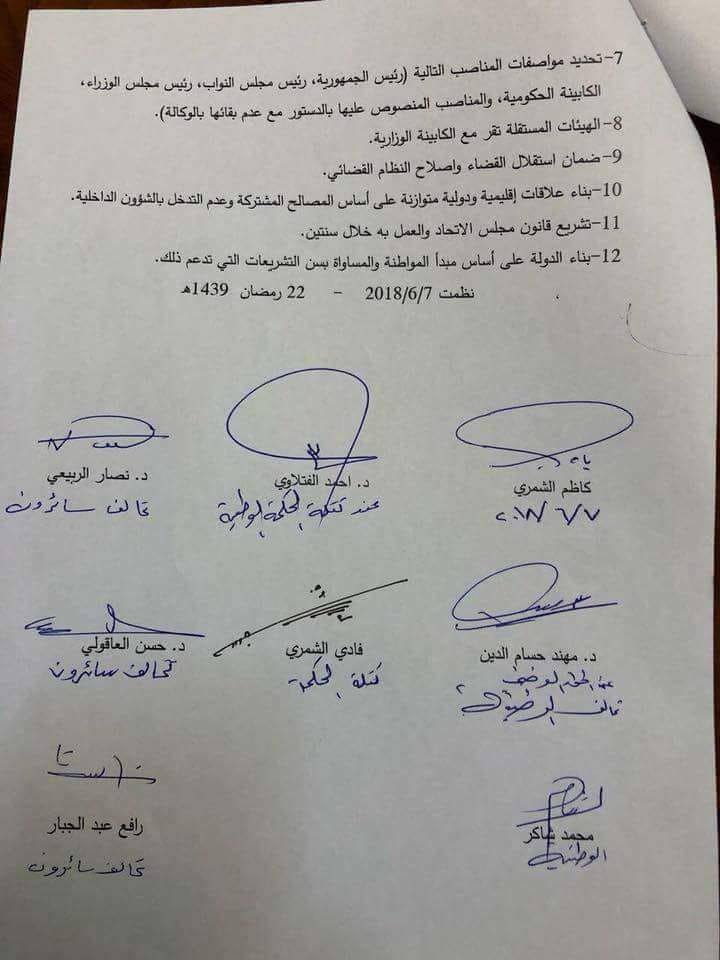 7-تحديد مواصفات المناصب التالية (رئيس الجمهورية، رئيس مجلس النواب، رئيس مجلس الوزراء،
الكابينة الحكومية، والمناصب المنصوص عليها بالدستور مع عدم بقائها بالوكالة).
8-الهيئات المستقلة تقر مع الكابينة الوزارية.
9-ضمان استقلال القضاء واصلاح النظام القضائي.
10-بناء علاقات إقليمية ودولية متوازنة على أساس المصالح المشتركة وعدم التدخل بالشؤون الداخلية.
11-تشريع قانون مجلس الاتحاد والعمل به خلال سنتين.
12-بناء الدولة على أساس مبدأ المواطنة والمساواة بسن التشريعات التي تدعم ذلك.
نظمت 2018/6/7 - 22 رمضان 1439هـ
كاظم الشمري
٢٠١٨/٦/٧
د. احمد الفتلاوي
عن كتلة الحكمة الوطنية
د. نصار الربيعي
تحالف سائرون
د. مهند حسام الدين
تحالف الوطنية
فادي الشمري
كتلة الحكمة
د. حسن العاقولي
تحالف سائرون
محمد شاكر
الوطنية
رافع عبد الجبار
تحالف سائرون